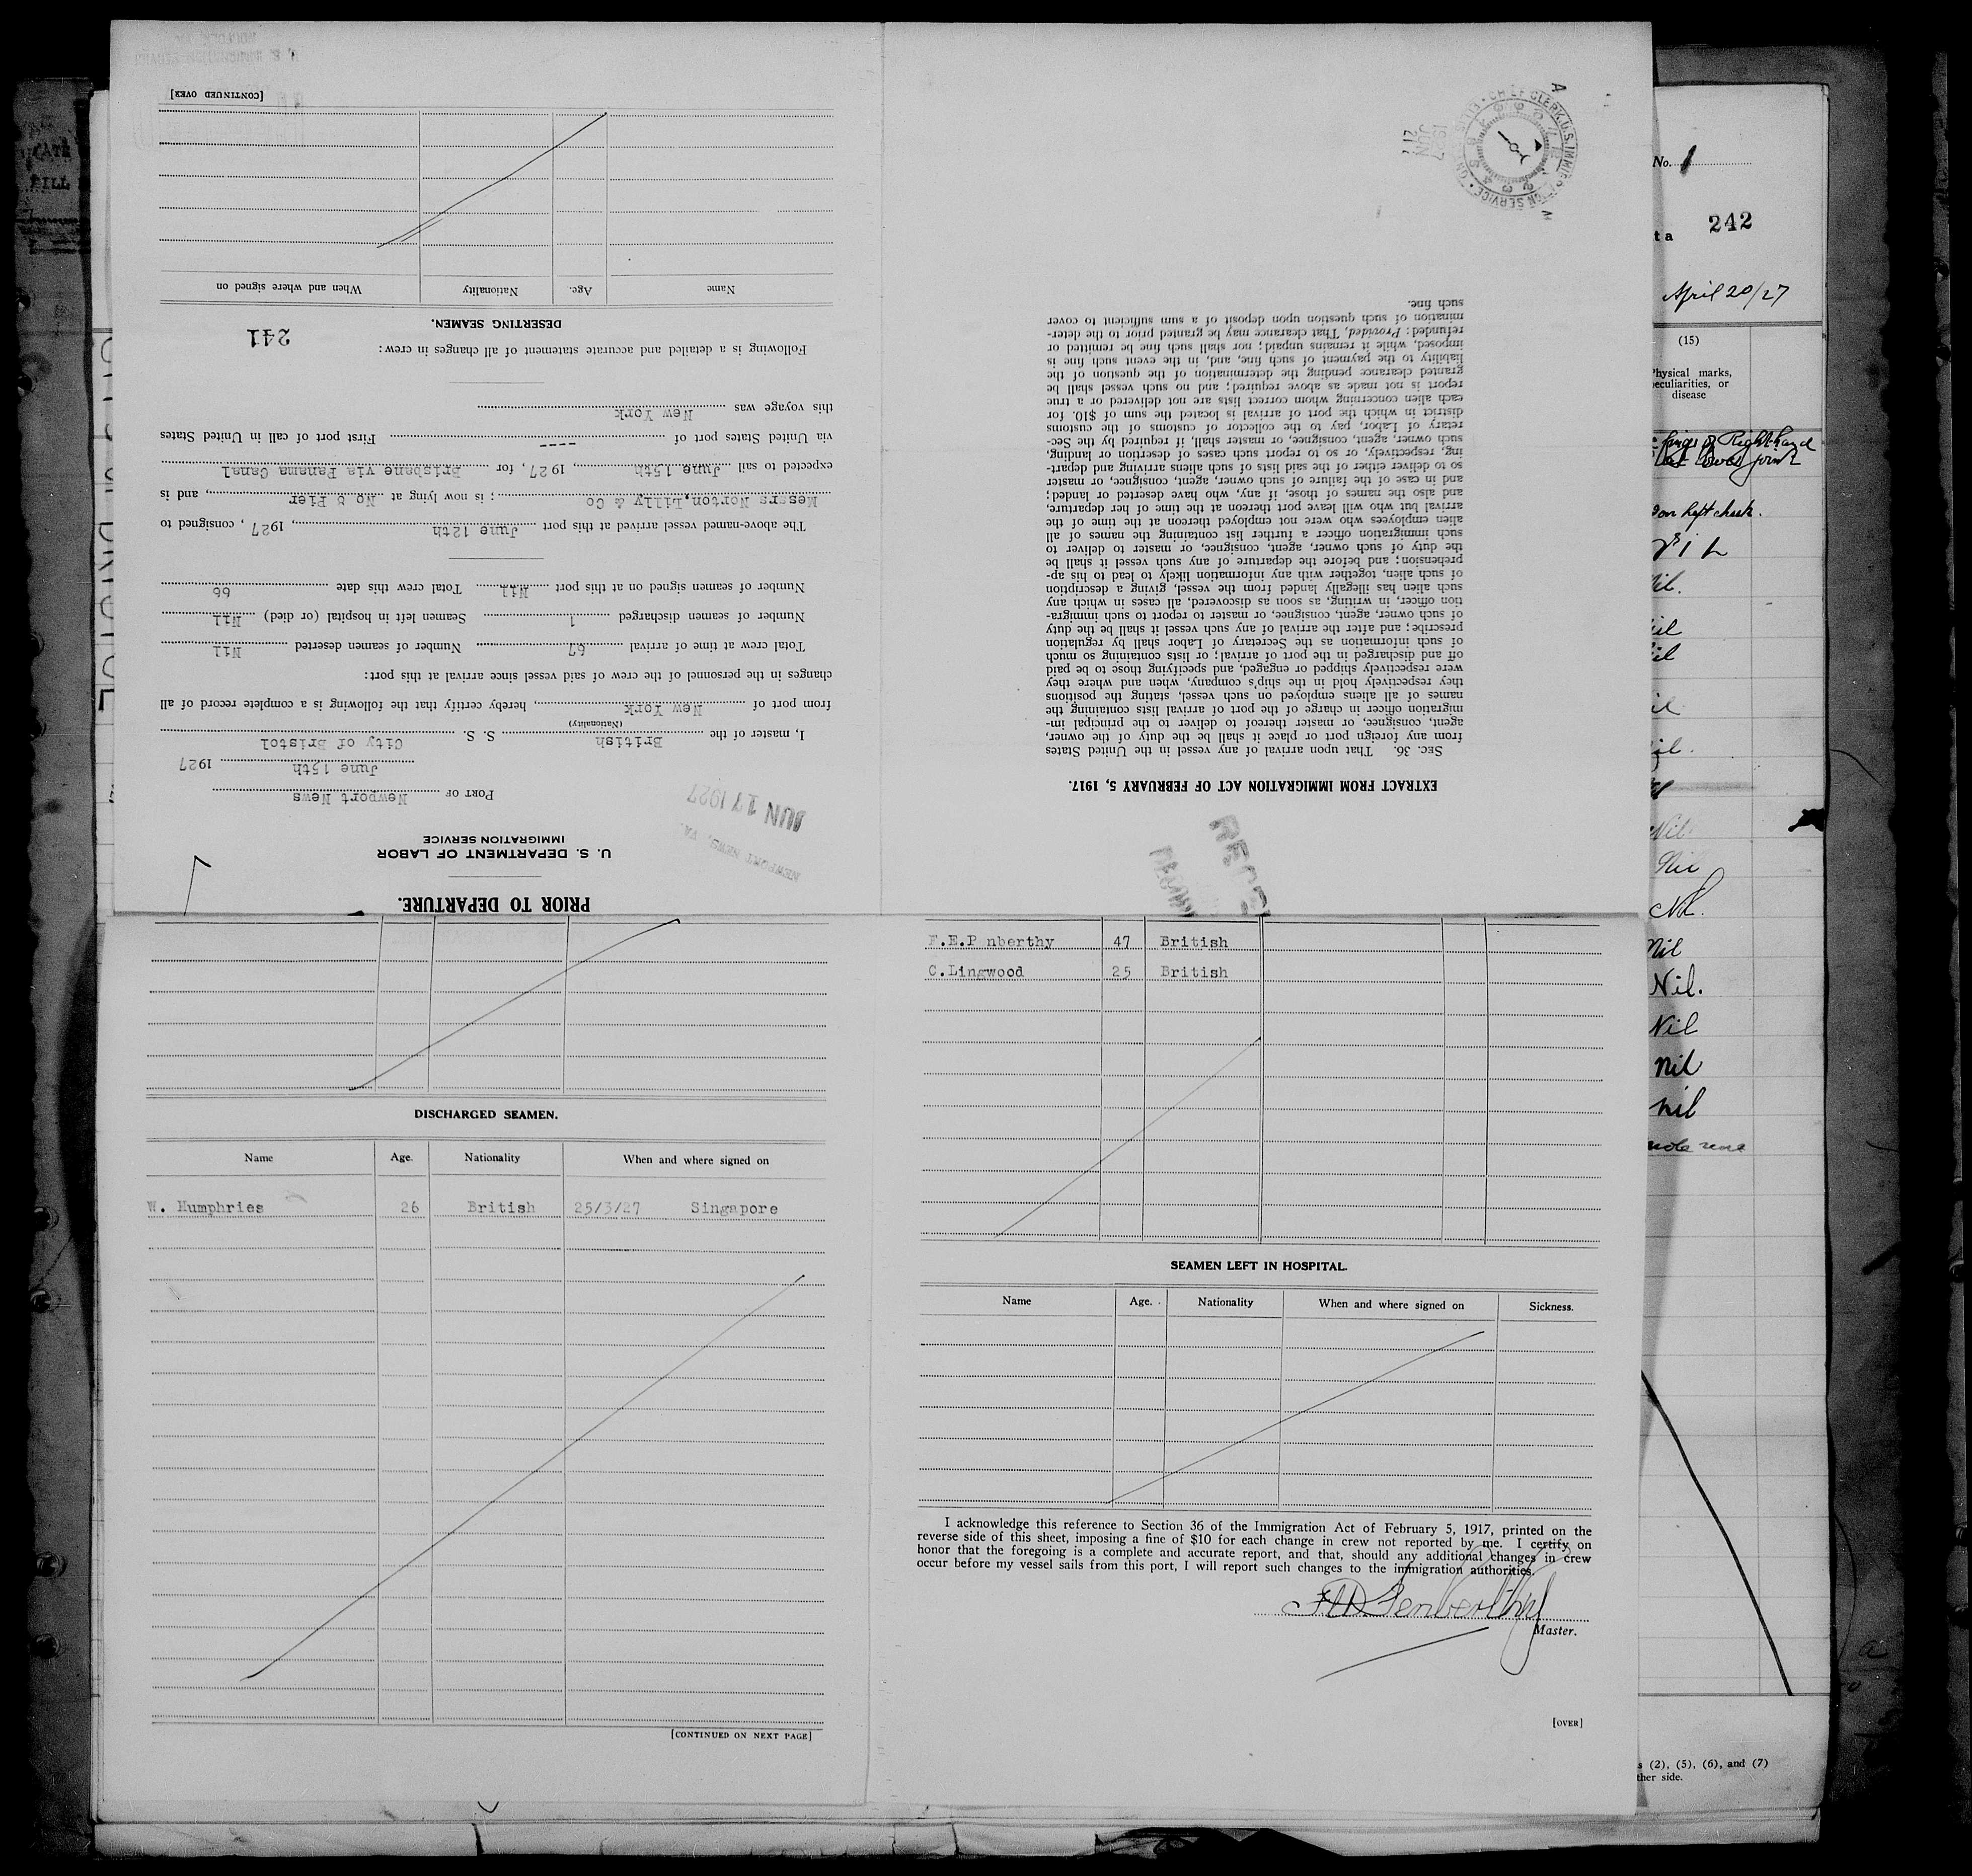 PRIOR TO DEPARTURE.
U. S. DEPARTMENT OF LABOR
IMMIGRATION SERVICE
NEWPORT NEWS, VA.
JUN 17 1927
PORT OF Newport News
June 15th 1927
I, master of the British S. S. City of Bristol
(Nationality)
from port of New York, hereby certify that the following is a complete record of all
changes in the personnel of the crew of said vessel since arrival at this port:
Total crew at time of arrival 67 Number of seamen deserted Nil
Number of seamen discharged 1 Seamen left in hospital (or died) Nil
Number of seamen signed on at this port Nil Total crew this date 66
The above-named vessel arrived at this port June 12th, 1927, consigned to
Messrs Norton,Lilly & Co; is now lying at No 8 Pier, and is
expected to sail June 15th, 1927, for Brisbane via Panama Canal
via United States port of ---- First port of call in United States
this voyage was New York
Following is a detailed and accurate statement of all changes in crew:
241
DESERTING SEAMEN.
Name Age. Nationality When and where signed on
[CONTINUED OVER]
EXTRACT FROM IMMIGRATION ACT OF FEBRUARY 5, 1917.
SEC. 36. That upon arrival of any vessel in the United States
from any foreign port or place it shall be the duty of the owner,
agent, consignee, or master thereof to deliver to the principal im-
migration officer in charge of the port of arrival lists containing the
names of all aliens employed on such vessel, stating the positions
they respectively hold in the ship's company, when and where they
were respectively shipped or engaged, and specifying those to be paid
off and discharged in the port of arrival; or lists containing so much
of such information as the Secretary of Labor shall by regulation
prescribe; and after the arrival of any such vessel it shall be the duty
of such owner, agent, consignee, or master to report to such immigra-
tion officer, in writing, as soon as discovered, all cases in which any
such alien has illegally landed from the vessel, giving a description
of such alien, together with any information likely to lead to his ap-
prehension; and before the departure of any such vessel it shall be
the duty of such owner, agent, consignee, or master to deliver to
such immigration officer a further list containing the names of all
alien employees who were not employed thereon at the time of the
arrival but who will leave port thereon at the time of her departure,
and also the names of those, if any, who have deserted or landed;
and in case of the failure of such owner, agent, consignee, or master
so to deliver either of the said lists of such aliens arriving and depart-
ing, respectively, or so to report such cases of desertion or landing,
such owner, agent, consignee, or master shall, if required by the Sec-
retary of Labor, pay to the collector of customs of the customs
district in which the port of arrival is located the sum of $10 for
each alien concerning whom correct lists are not delivered or a true
report is not made as above required; and no such vessel shall be
granted clearance pending the determination of the question of the
liability to the payment of such fine, and, in the event such fine is
imposed, while it remains unpaid; nor shall such fine be remitted or
refunded: Provided, That clearance may be granted prior to the deter-
mination of such question upon deposit of a sum sufficient to cover
such fine.
CHIEF CLERK, U.S. IMMIGRATION SERVICE
1927
JUN
21
DISCHARGED SEAMEN.
Name Age. Nationality When and where signed on
W. Humphries 26 British 25/3/27 Singapore
[CONTINUED ON NEXT PAGE]
F.E.P nberthy 47 British
C.Lingwood 25 British
SEAMEN LEFT IN HOSPITAL.
Name Age. Nationality When and where signed on Sickness.
I acknowledge this reference to Section 36 of the Immigration Act of February 5, 1917, printed on the
reverse side of this sheet, imposing a fine of $10 for each change in crew not reported by me. I certify on
honor that the foregoing is a complete and accurate report, and that, should any additional changes in crew
occur before my vessel sails from this port, I will report such changes to the immigration authorities.
Penberthy
Master.
[OVER]
No. 1
242
April 20/27
(15)
Physical marks,
peculiarities, or
disease
finger of Right hand
joint
on left cheek.
Nil.
Nil
Nil
Nil
Nil.
Nil
Nil
Nil.
Nil
Nil.
Nil
nil
nil
(2), (5), (6), and (7)
other side.